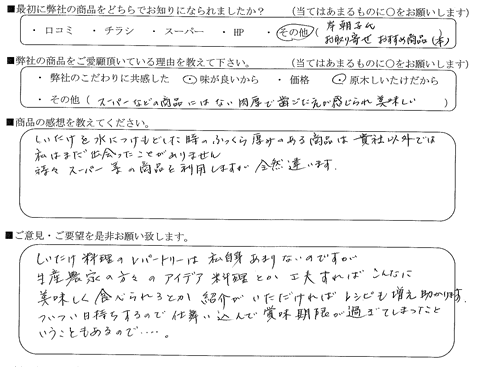 ■最初に弊社の商品をどちらでお知りになられましたか？　（当てはまるものに○をお願いします）
・口コミ　・チラシ　・スーパー　・HP　・その他（岸朝子氏
お取り寄せおすすめ商品（本））
■弊社の商品をご愛顧頂いている理由を教えて下さい。　（当てはまるものに○をお願いします）
・弊社のこだわりに共感した　・味が良いから　・価格　・原木しいたけだから
・その他（スーパーなどの商品にはない肉厚で歯ごたえが感じられ美味しい）
■商品の感想を教えてください。
しいたけを水につけもどした時のふっくら厚みのある商品は貴社以外では
私はまだ出会ったことがありません
時々スーパー等の商品を利用しますが全然違います.
■ご意見・ご要望を是非お願い致します。
しいたけ料理のレパートリーは私自身あまりないのですが
生産農家の方々のアイデア料理とか工夫すればこんなに
美味しく食べられるとか紹介がいただければレシピも増え助かります.
ついつい日持ちするので仕舞い込んで賞味期限が過ぎてしまったこと
いうこともあるので‥‥。